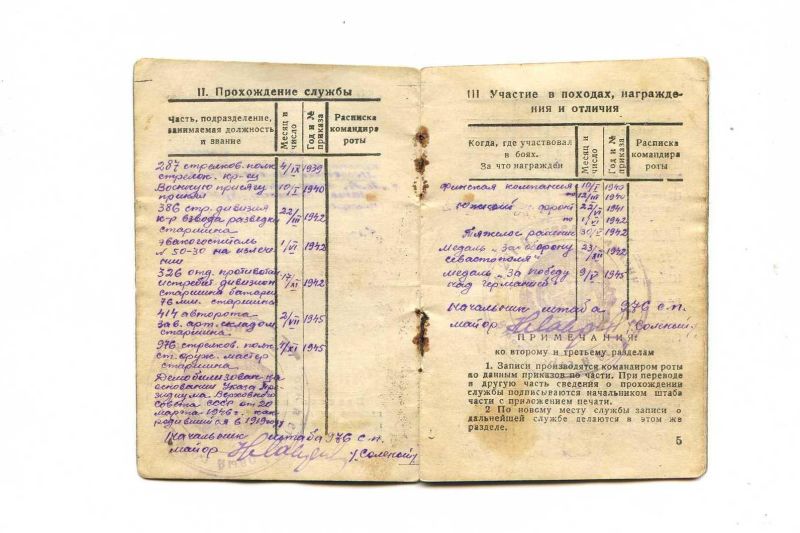 II. Прохождение службы
Часть, подразделение, занимаемая должность и звание
Месяц и число
Год и № приказа
Расписка командира роты
287 стрелков. полк 4/IX 1939
стрелок. кр-ец
Военную присягу 10/I 1940
принял
386 стр. дивизия
к-р взвода разведки 22/III 1942
старшина
Эвакогоспиталь 1/VI 1942
№ 50-30 на излечении
326 отд. противотан
истребит дивизион 17/XI 1942
старшина батареи
76 мм. старшина
414 авторота 2/VII 1945
Зав. арт. складом
старшина
976 стрелков. полк 1/XI 1945
ст. оруж. мастер
старшина
Демобилизован на
основании Указа Пре-
зидиума Верховного
Совета СССР от 20
марта 1946 г. как
родившийся в 1919 году
Начальник штаба 976 с.п.
майор
III Участие в походах, награжде-
ния и отличия
Когда, где участвовал в боях. За что награжден
Месяц и число
Год и № приказа
Расписка командира роты
Финская кампания 10/I 1940
по 12/III 1940
Южный фронт 22/VI 1941
по 1/VI 1942
Тяжелое ранение 30/V 1942
медаль „За оборону 23/XII 1942
Севастополя"
медаль „За победу 9/V 1945
над германией"
Начальник штаба 976 с.п.
майор
ПРИМЕЧАНИЯ
ко второму и третьему разделам
1. Записи производятся командиром роты
по данным приказов по части. При переводе
в другую часть сведения о прохождении
службы подписываются начальником штаба
части с приложением печати.
2 По новому месту службы записи о
дальнейшей службе делаются в этом же
разделе.
5